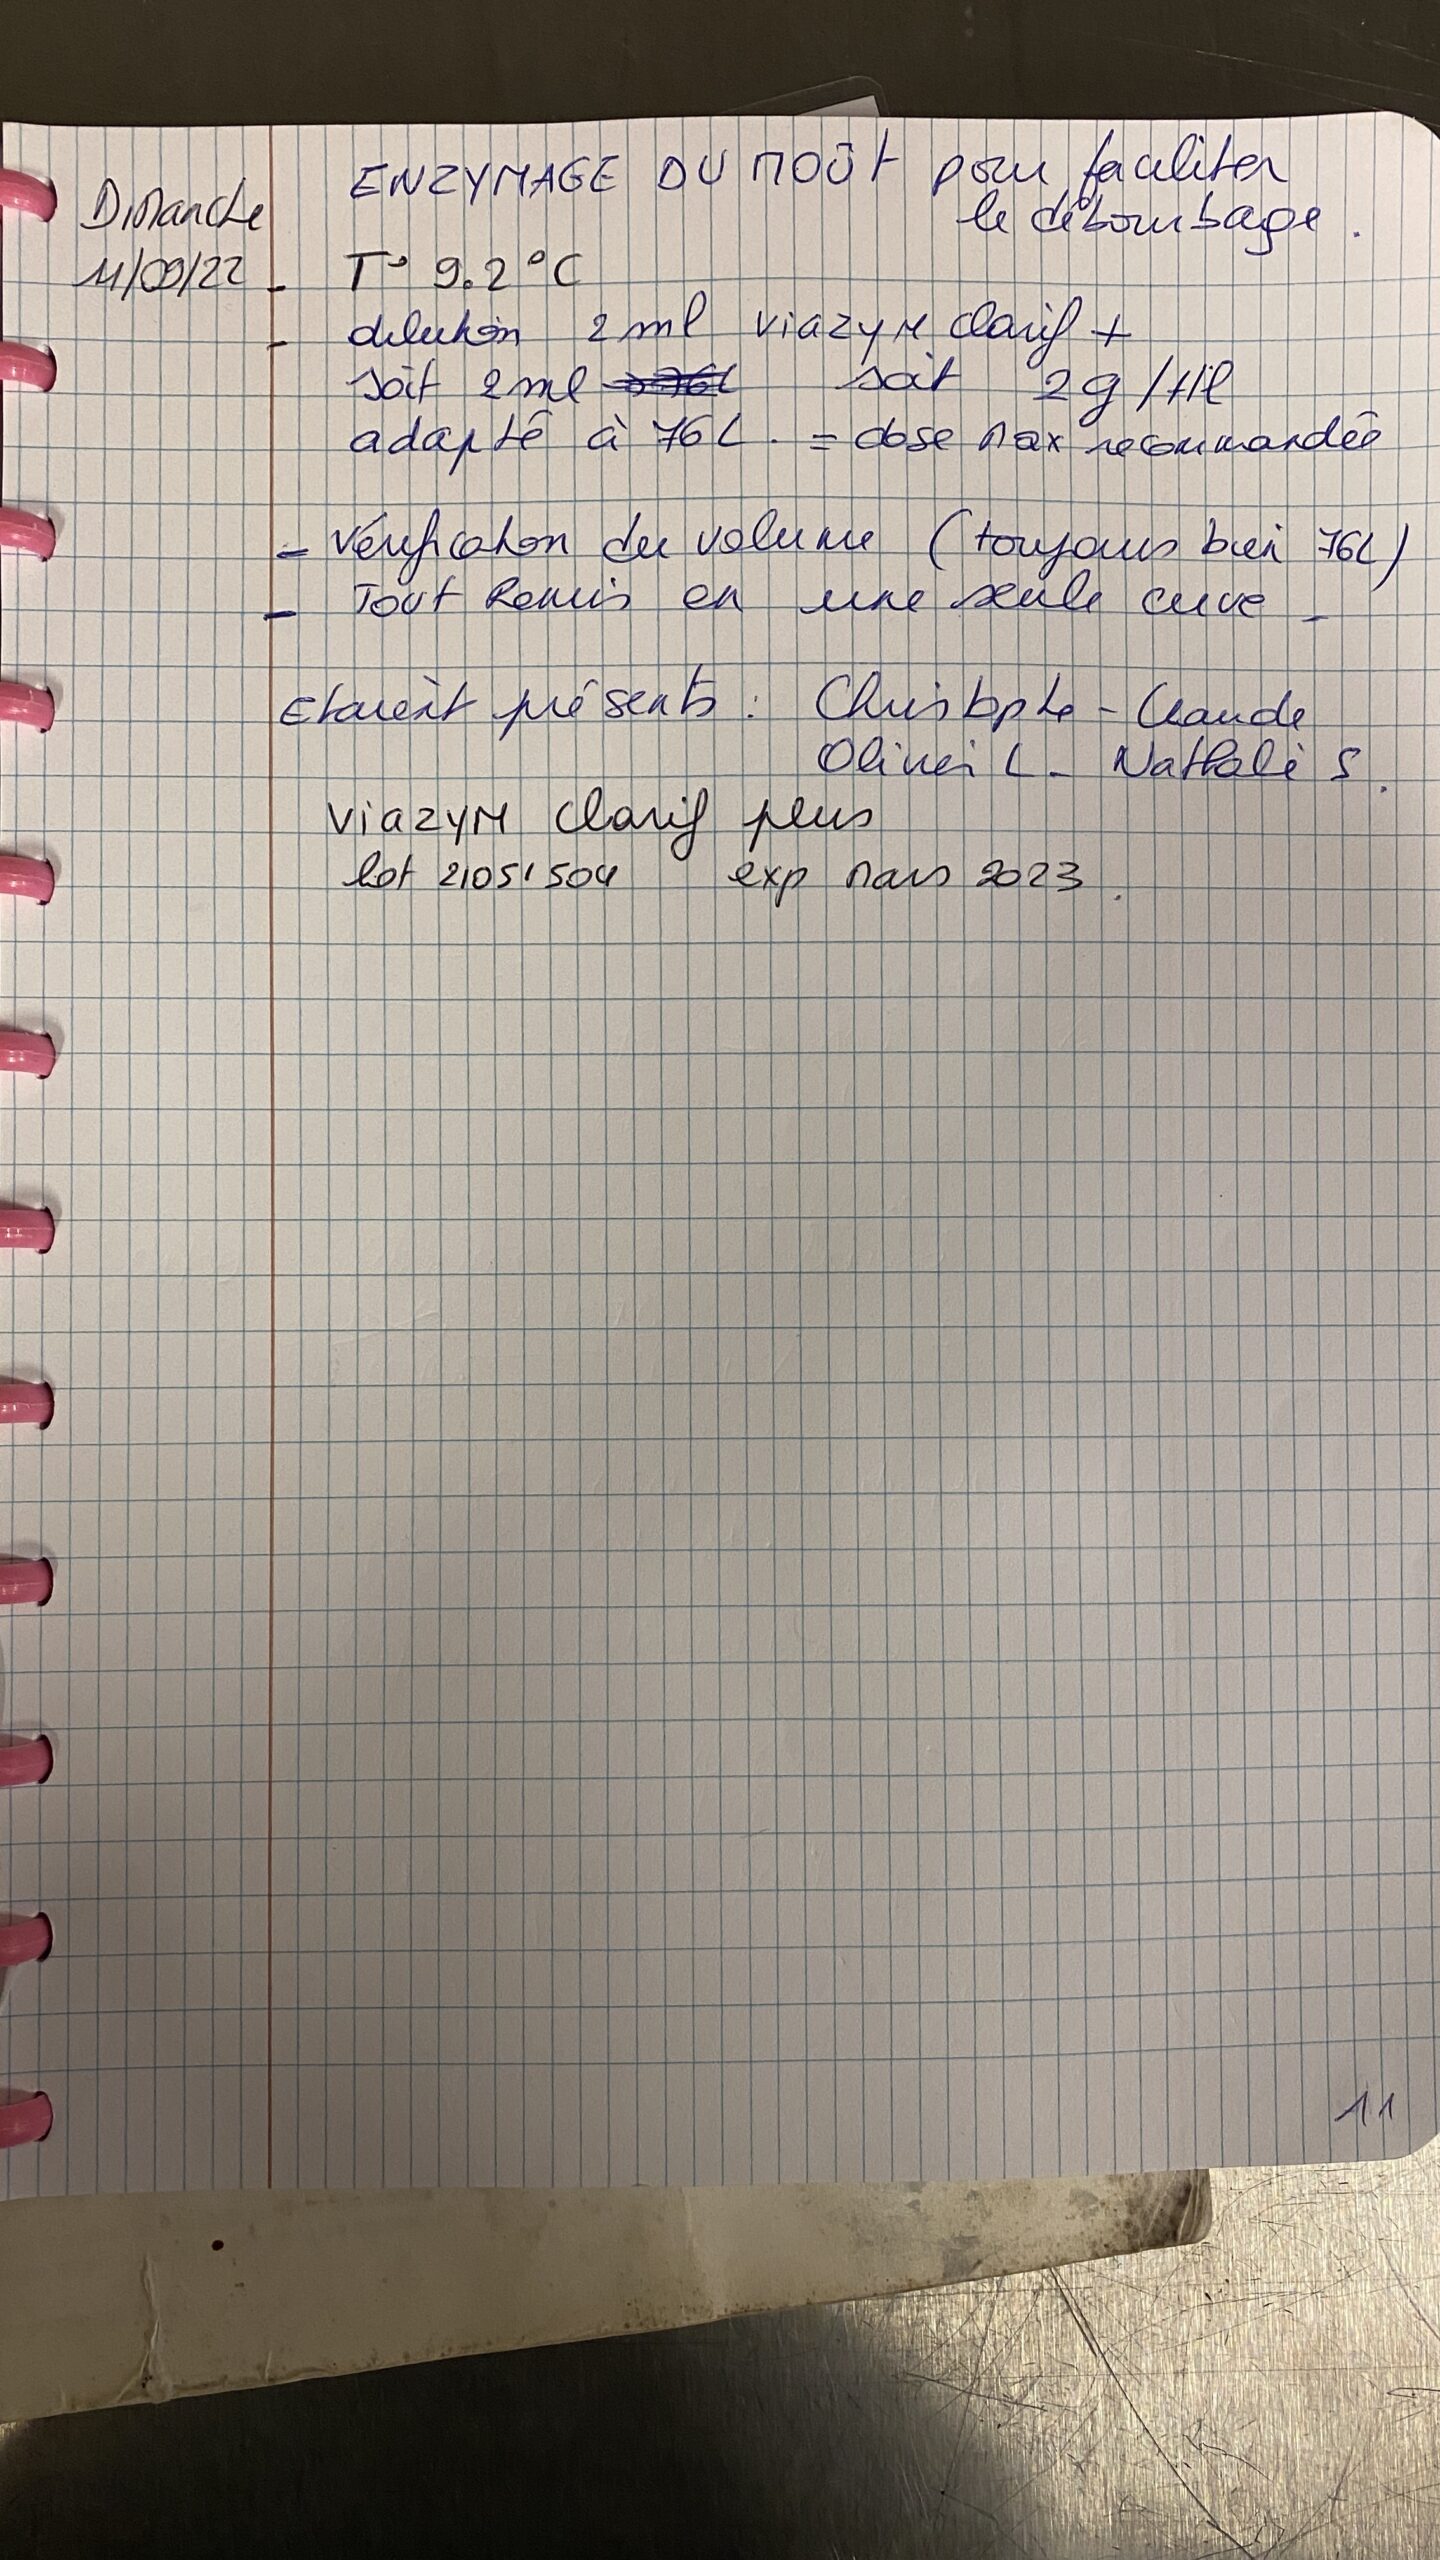 ENZYMAGE DU MOÛT pour faciliter
le débourbage.
Dimanche
11/09/22 - T° 9.2°C
- dilution 2 ml viazym clarif +
soit 2 ml → 76L soit 2g/Hl
adapté à 76L. = dose max recommandée
- Vérification du volume (toujours bien 76L)
- Tout Remis en une seule cuve -
Etaient présents : Christophe - Claude
Olivier L - Nathalie S.
viazym clarif plus
lot 21051504 exp mars 2023.
11